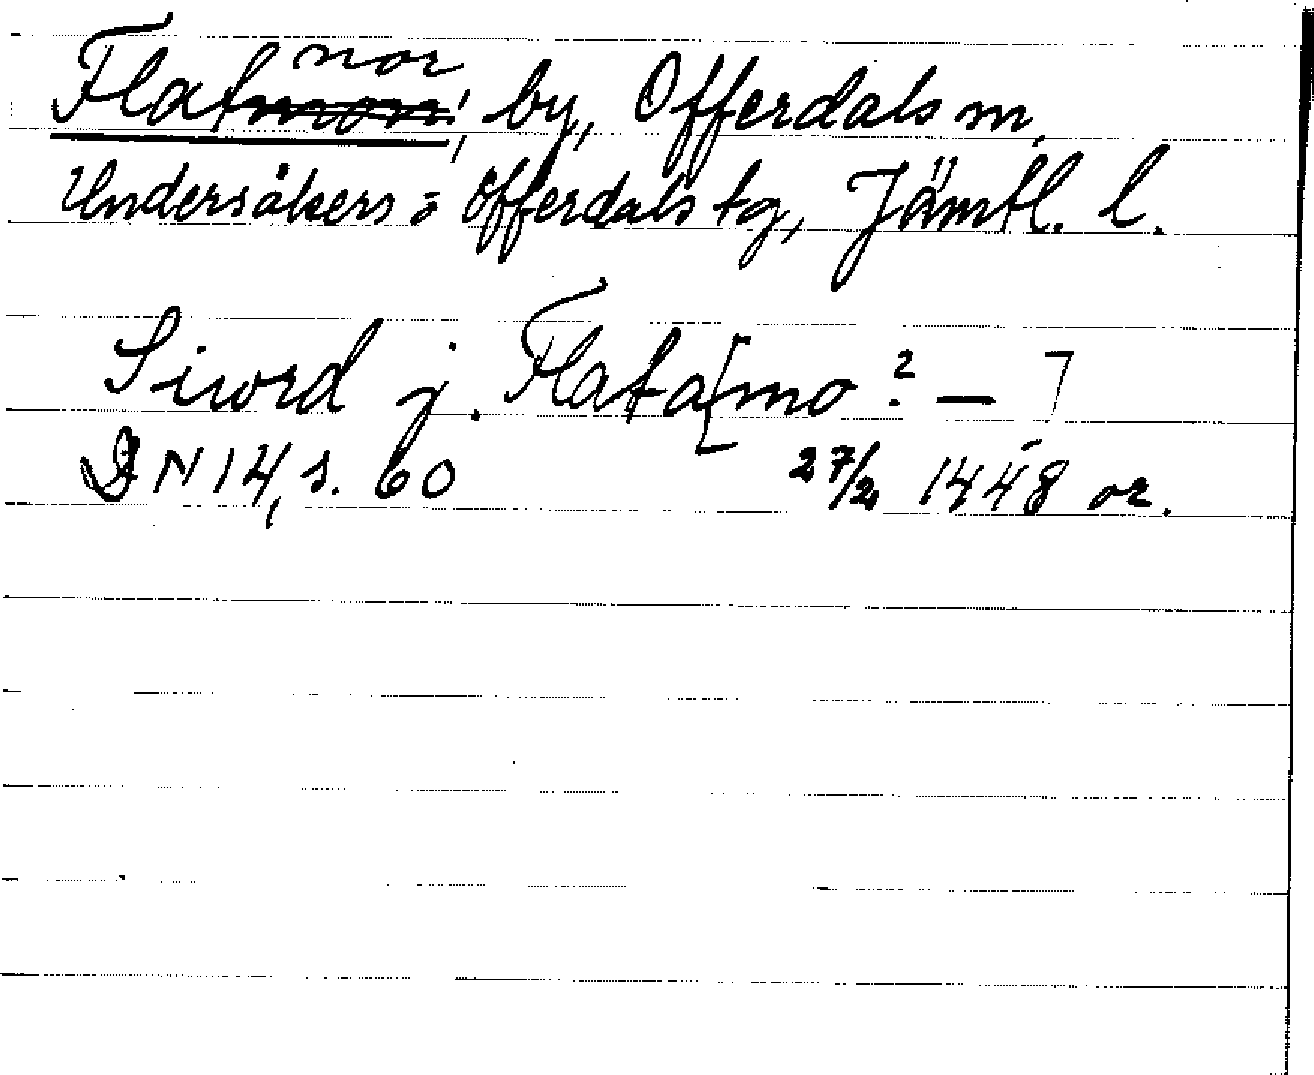 Flatnor, by, Offerdals sn,
Undersåkers o Offerdals tg, Jämtl. l.
Siword j. Flata[mo ? — ]
DN 14, s. 60 27/2 1448 or.